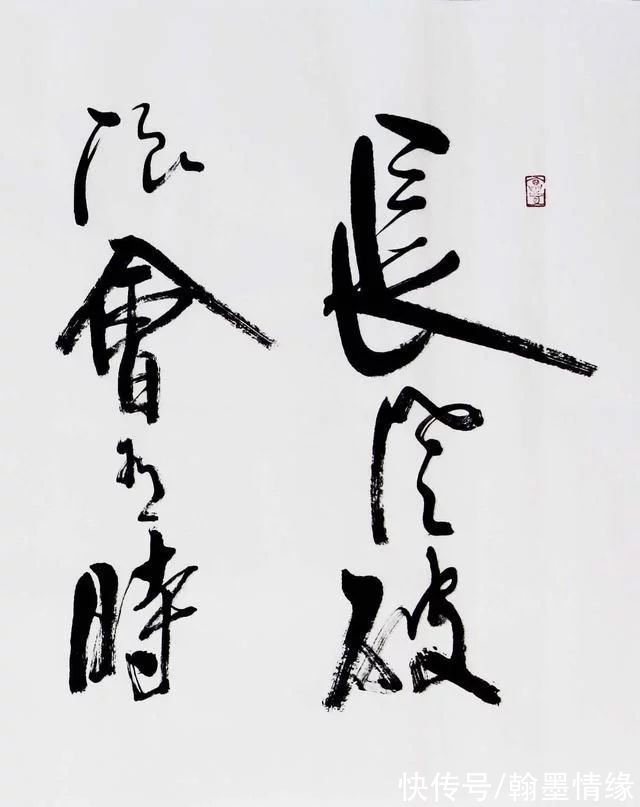 長風破
浪會有時
快传号/翰墨情缘